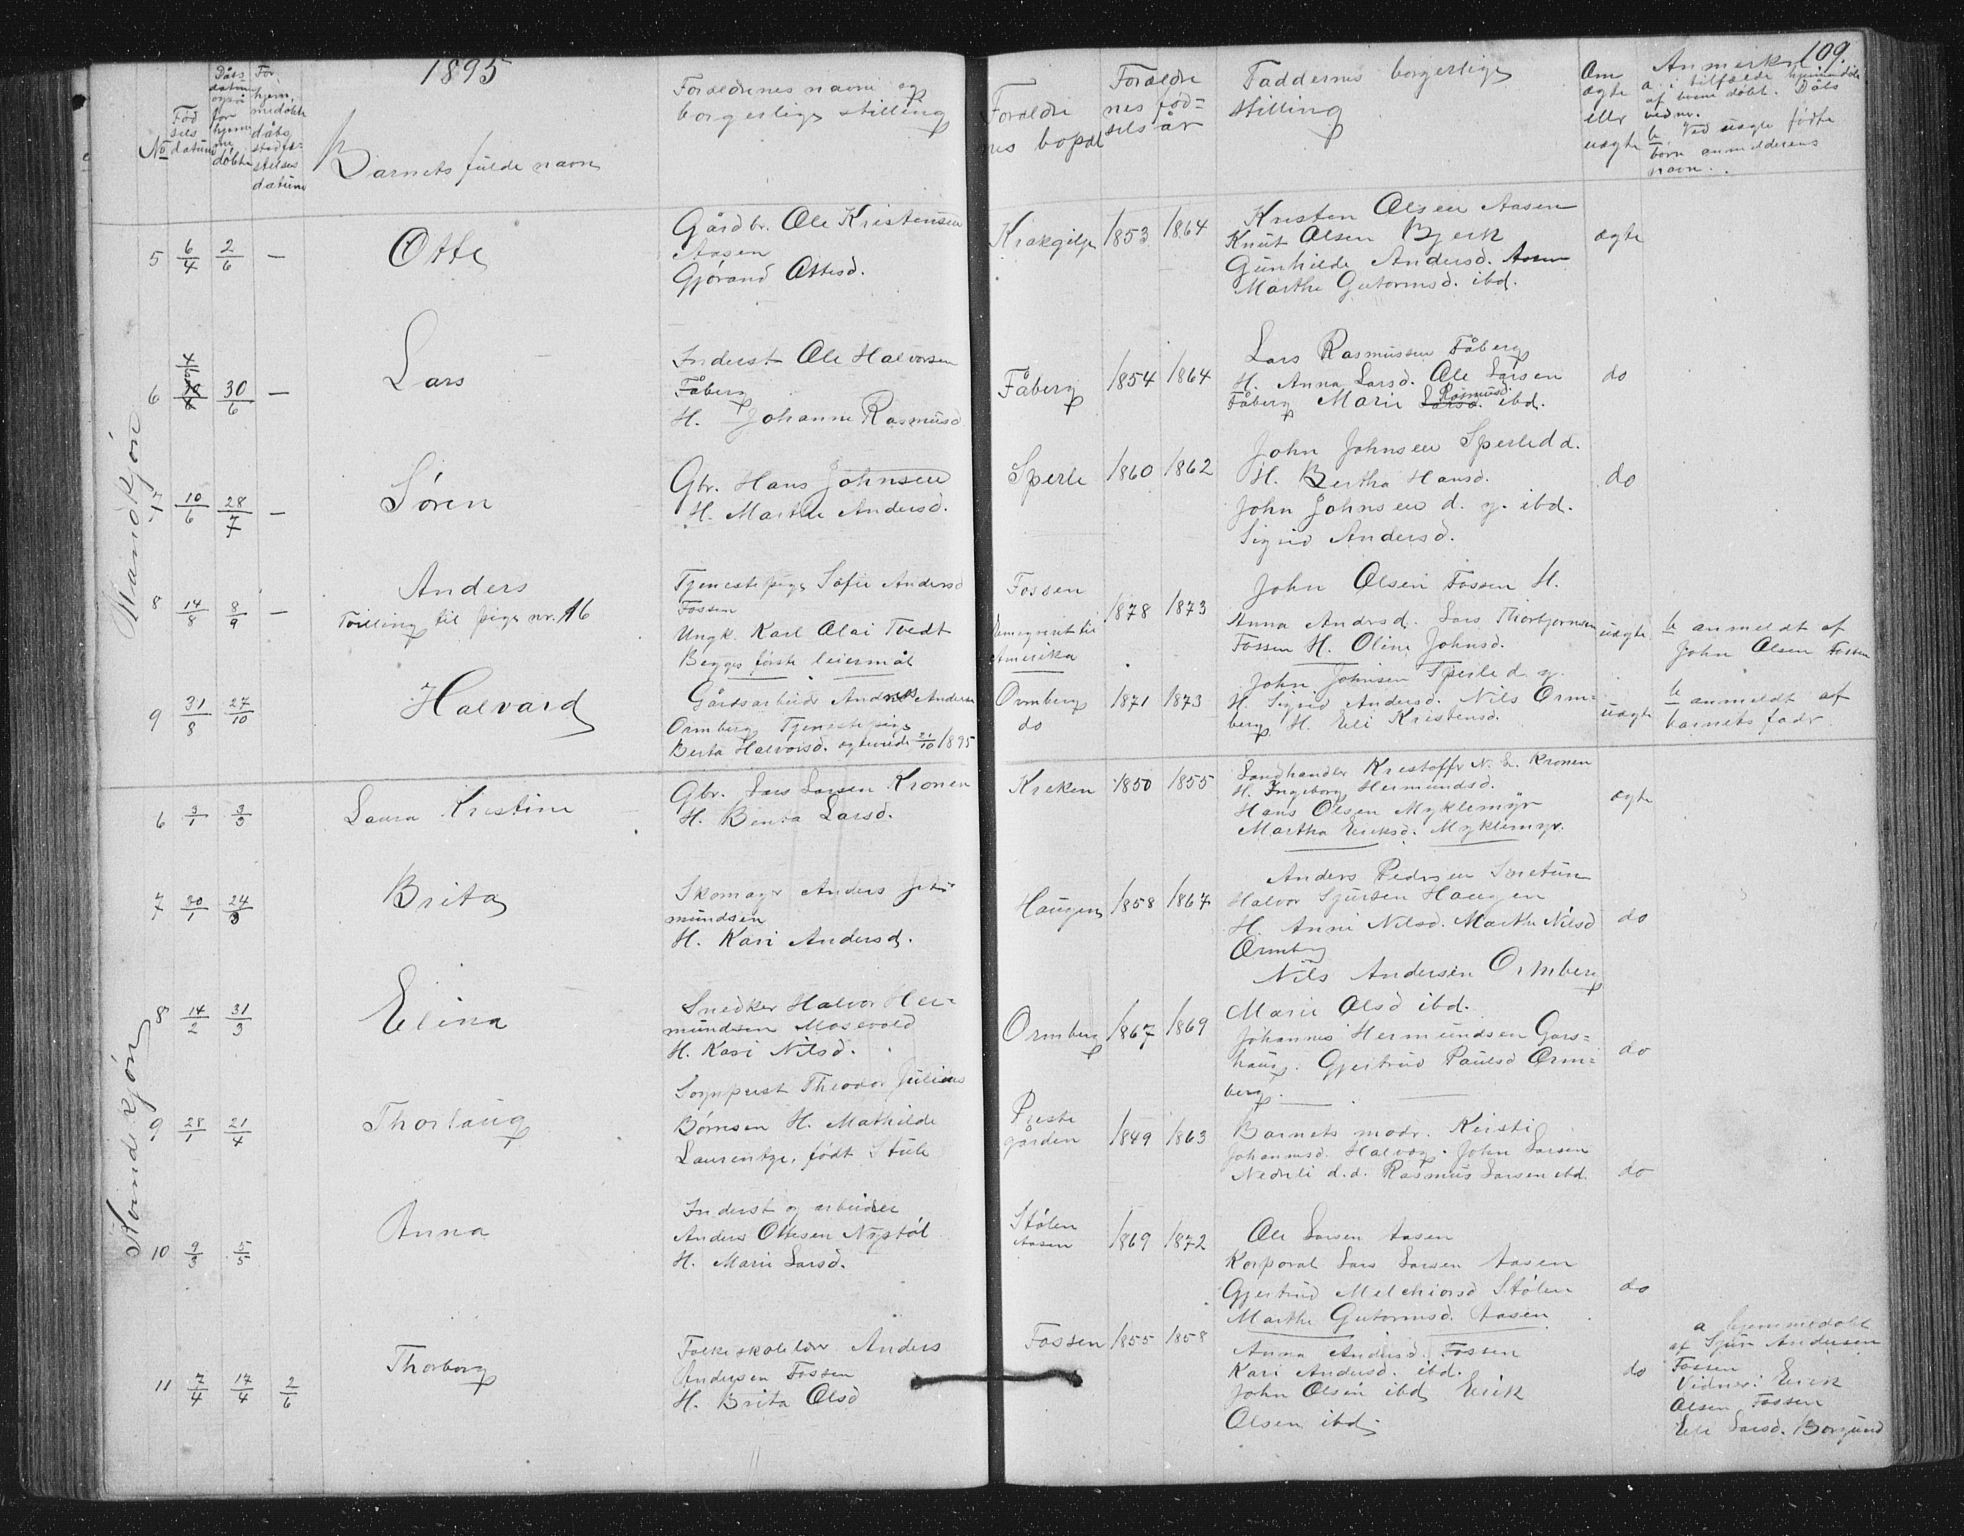 1895
109.
No
Fød
sels
datum
Dåbs-
datum
også
for
hjem
me
døbte
For
hjem
medøbte
dåbs
stadfæ-
stelses
datum
Barnets fulde navn
Forældrenes navne og
borgerlige stilling
Forældre
nes bopæl
Forældre
nes fød=
selsår
Faddernes borgerlige
stilling
Om
ægte
eller
uægte
Anmerkn.
a i tilfælde hjemmedåb
af hvem døbt. Dåbs
vidner.
b Ved uægte fødte
børn anmelderens
navn.
Mandkjøn
5 6/4 2/6 —
Otte
Gårdbr. Ole Kristensen
Aasen
Gjørand Ottesd.
Krækgilje 1853 1864
Kristen Olsen Aasen
Knut Olsen Bjerk
Gunhilde Andersd. Aasen
Marthe Gutormsd. ibd.
ægte
6 30/6 —
Lars
Inderst Ole Halvorsen
Fåberg
H. Johanne Rasmusd
Fåberg 1854 1864
Lars Rasmussen Fåberg
H. Anna Larsd. Ole Larsen
Fåberg Marie Rasmusd. ibd.
do
7 10/6 28/7 —
Søren
Gbr. Hans Johnsen
H. Marthe Andersd.
Sperle 1860 1862
John Johnsen Sperle d. d.
H. Bertha Hansd.
John Johnsen d. y. ibd.
Sigrid Andersd.
do
8 14/8 8/9 —
Anders
Tvilling til pige nr. 16
Tjenestepige Sofie Andersd
Fossen
Ungk. Karl Olai Tvedt
Begges første leiermål
Fossen
Emigreret til
Amerika
1878 1873
John Olsen Fossen H.
Anna Andersd. Lars Thorbjørnsen
Fossen H. Oline Johnsd.
uægte
b anmeldt af
John Olsen Fossen
9 31/8 27/10
Halvard
Gårdsarbeider Andreas Andersen
Ormberg Tjenestepige
Berta Halvorsd. ægteviede 21/10 1895
Ormberg
do
1871 1873
John Johnsen Sperle d. y.
H. Sigrid Andersd. Nils Orm=
berg H. Eli Kristensd.
uægte
b anmeldt af
barnets fader
Kvindekjøn
6 3/1 3/3
Laura Kristine
Gbr. Lars Larsen Kronen
H. Benta Larsd.
Kreken 1850 1855
Landhandler Kristoffer N. L. Kronen
H. Ingeborg Hermundsd.
Hans Olsen Myklemyr
Martha Eriksd. Myklemyr.
ægte
7 20/1 24/3
Brita
Skomager Anders
mundsen
H. Kari Andersd.
Haugen 1858 1867
Anders Pedersen Søretun
Halvor Sjursen Haugen
H. Anne Nilsd. Marthe Nilsd
Ormberg
do
8 14/2 31/3
Elina
Snedker Halvor Her=
mundsen Mosevold
H. Kari Nilsd.
Ormberg 1867 1869
Nils Andersen Ormberg
Marie Olsd ibd.
Johannes Hermundsen Gars=
haug. Gjertrud Paulsd Orm=
berg.
do
9 28/1 21/4
Thorlaug
Sognprest Theodor Julius
Børnsen H. Mathilde
Laurentze, født Stub
Preste
gården
1849 1863
Barnets moder. Kersti
Johannesd. Halvåg. John Larsen
Nedreli d.d. Rasmus Larsen ibd.
do
10 9/3 5/5
Anna
Inderst og arbeider
Anders Ottesen Nystøl
H. Marie Larsd.
Stølen
Aasen
1869 1872
Ole Larsen Aasen
Korporal Lars Larsen Aasen
Gjertrud Melchiorsd Stølen
Marthe Gutormsd. Aasen
do
11 7/4 17/4 2/6
Thorborg
Folkeskolelærer Anders
Andersen Fossen
H. Brita Olsd
Fossen 1855 1858
Anna Andersd. Fossen
Kari Andersd. ibd.
John Olsen ibd, Erik
Olsen ibd.
do
a hjemmedøbt
af Sjur Andersen
Fossen
Vidner: Erik
Olsen Fossen
Eli Larsd. Borgund